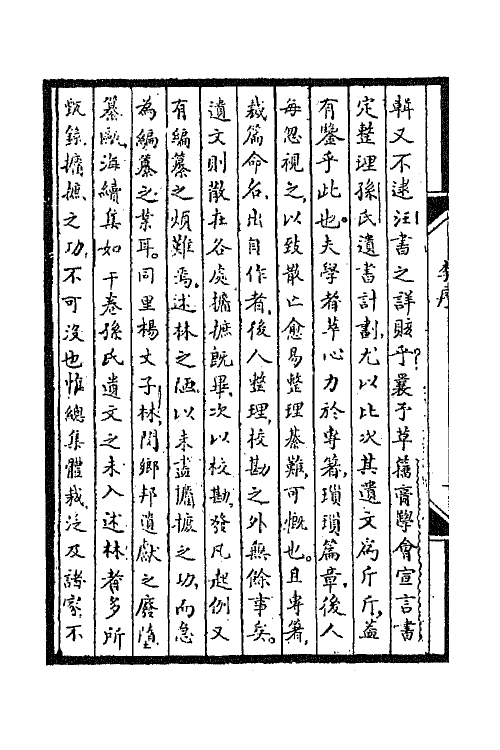 輯又不逮汪書之詳賅乎？曩予草籀廎學會宣言書
定整理孫氏遺書計劃，尤以比次其遺文為斤斤，蓋
有鑒乎此也。夫學者萃心力於專著，瑣瑣篇章，後人
每忽視之，以致散亡愈易，整理綦難，可慨也。且專著，
裁篇命名，出自作者，後人整理，校勘之外，無餘事矣。
遺文則散在各處，攟摭既畢，次以校勘，發凡起例，又
有編纂之煩難焉。述林之陋，以未盡攟摭之功，而急
為編纂之業耳。同里楊文子林，閔鄉邦遺獻之廢墮
纂甌海續集如干卷，孫氏遺文之未入述林者，多所
甄錄，攟摭之功，不可沒也，惟總集體裁，泛及諸家，不
李序